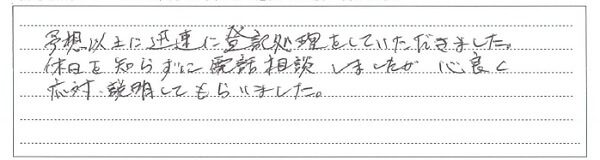 予想以上に迅速に登記処理をしていただきました。
休日を知らずに電話相談しましたが心良く
応対、説明してもらいました。